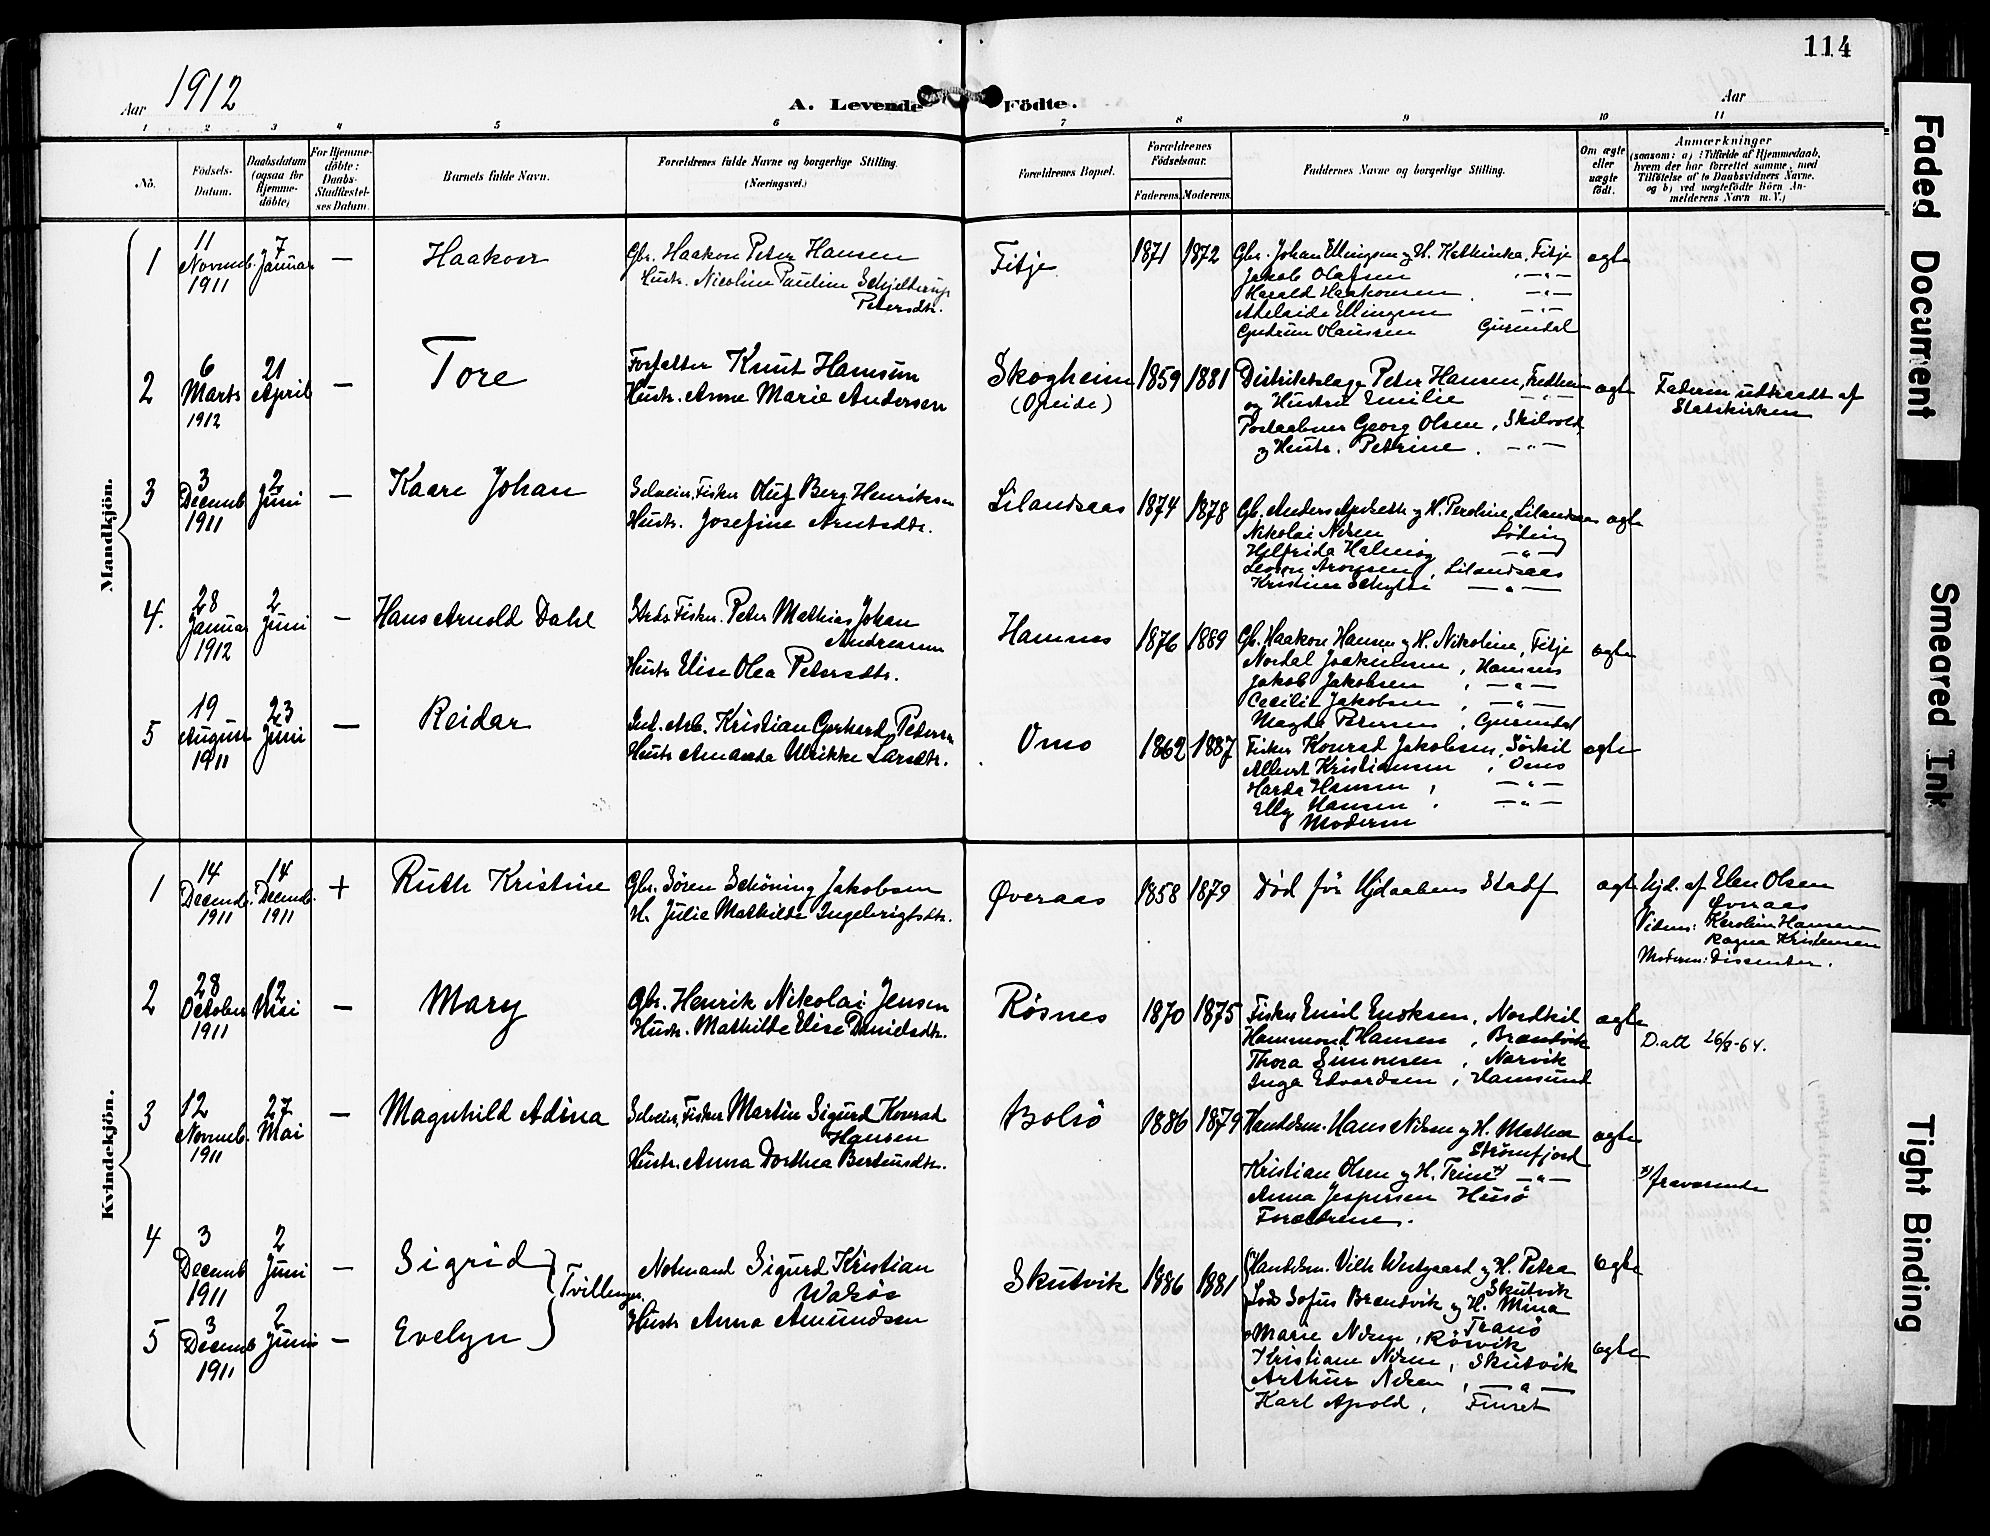 114
Aar 1912
A. Levende Födte.
Aar
1 2 3 4 5 6 7 8 9 10 11
No.
Födsels-Datum.
Daabsdatum (ogsaa for Hjemme-döbte)
For Hjemme-döbte: Daabs-Stadfæstel-ses Datum.
Barnets fulde Navn.
Forældrenes fulde Navne og borgerlige Stilling.
(Næringsvei.)
Forældrenes Bopæl.
Forældrenes Födselsaar.
Faderens. Moderens.
Faddernes Navne og borgerlige Stilling.
Om ægte eller uægte födt.
Anmærkninger
(saasom: a) i Tilfælde af Hjemmedaab,
hvem der har forrettet samme, med
Tilföielse af to Daabsvidners Navne,
og b) ved uægtefödte Börn An-
melderens Navn m. V.)
Mandkjön.
1
11 Novemb. 1911
7 Januar
—
Haakon
Gbr. Haakon Peter Hansen
Hustr. Nicoline Pauline Schjelderup
Petersdtr.
Fitje
1871 1872
Gbr. Johan Ellingsen og H. Kathinka, Fitje
Jakob Olafsen —"—
Harald Haakonsen —"—
Adelaide Ellingsen —"—
Gudrun Claussen Gurendal
ægte
2
6 Marts 1912
21 April
—
Tore
Forfatter Knut Hamsun
Hustr. Anne Marie Andersen
Skogheim
(Opeide)
1859 1881
Distriktslæge Peter Hansen,
og Hustru Emilie —"—
Postaabner Georg Olsen, Skilvold,
og Hustr. Petrine. —"—
ægte
Faderen udtraadt af
Statskirken
3
3 Decemb 1911
2 Juni
—
Kaare Johan
Selveier, Fisker Oluf Berg Henriksen
Hustr. Josefine Arntsdtr.
Lilandsaas
1874 1878
Gb. Anders og H. Perdine, Lilandsaas
Nikolai Nilsen
—"—
Aronsen, Lilandsaas
Kristine —"—
ægte
4.
28 Januar 1912
2 Juni
—
Hans Arnold Dahl
Fisker. Peter Mathias Johan
Andreassen
Hustr Elise Olea Petersdtr.
Hamnes
1876 1889
Gb. Haakon Hansen og H. Nikoline, Fitje
Nordal Joakimsen, Hamnes
Jakob Jakobsen, —"—
Cecilie Jakobsen, —"—
Magda Petersen, Gurendal
ægte
5
19 August 1911
23 Juni
—
Reidar
Arb. Kristian Gerhard Pedersen
Hustr Amanda Ulrikke Larsdtr.
Omo
1862 1887
Fisker Konrad Jakobsen, Sörkil
Albert Kristiansen, Omo
Harda Hansen, —"—
Elly Hansen. —"—
Moderen
ægte
Kvindekjön.
1
14 Decemb. 1911
14 Decemb. 1911
+
Ruth Kristine
Gbr. Søren Schöning Jakobsen
H. Julie Mathilde Ingebrigtsdtr.
Øveraas
1858 1879
Død för Hjdaabens Stadf
ægte
Hjd. af Elen Olsen
Øveraas
Vidner: Karoline Hansen
Ragna Kristensen
Moderen: Dissenter.
2
28 October 1911
12 Mai
—
Mary
Gbr. Henrik Nikolai Jensen
Hustr. Mathilde Elise Danielsdtr.
Røsnes
1870 1875
Fisker Emil Eriksen, Nordkil
Hammond Hansen, Brandvik
Thora Simonsen, Narvik
Inga Edvardsen, Hamsund
ægte
D.att 26/8-64.
3
12 Novemb. 1911
27 Mai
—
Magnhild Adina
Selveier, Fisker Martin Sigurd Konrad
Hansen
Hustr. Anna Dorthea Berteusdtr.
Bolsö
1886 1879
Handelsm. Hans Nilsen og H. Mathea
Strømfjord
Kristian Olsen og H. Trine x) —"—
Anna Jespersen Husö
Forældrene.
ægte
x) fraværende
4
3 Decemb 1911
2 Juni
—
Sigrid
Tvillinger.
Notmand Sigurd Kristian
Waksöe
Hustr Anna Amundsen
Skutvik
1886 1881
Handelsm. Vilh Westgaard og H. Petra
Skutvik
Lods Sofus Brandvik og H. Mina
Tranö
Marie Nilsen, Rösvik
Kristiane Nilsen, Skutvik
Arthur Nilsen, —"—
Karl Apold, Finset
ægte
5
3 Decemb 1911
2 Juni
—
Evelyn
ægte
Faded Document
Smeared Ink
Tight Binding